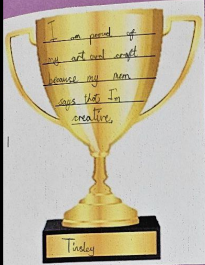 I am proud of
my art and craft
because my mem
says that I'm
creative.
Tinsley